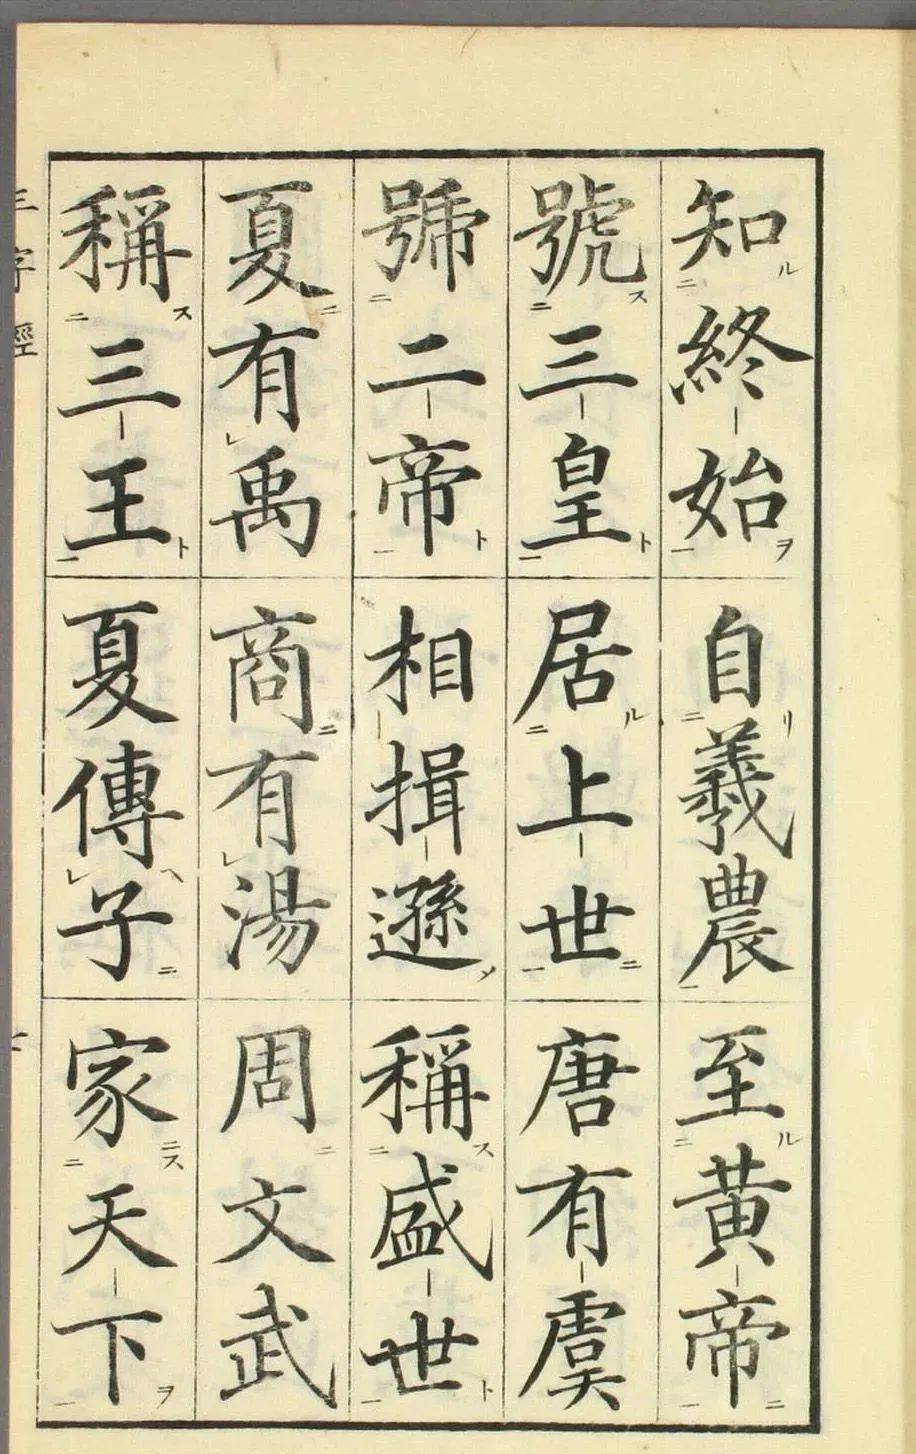 知終始 自羲農 至黃帝
號三皇 居上世 唐有虞
號二帝 相揖遜 稱盛世
夏有禹 商有湯 周文武
稱三王 夏傳子 家天下
三字經